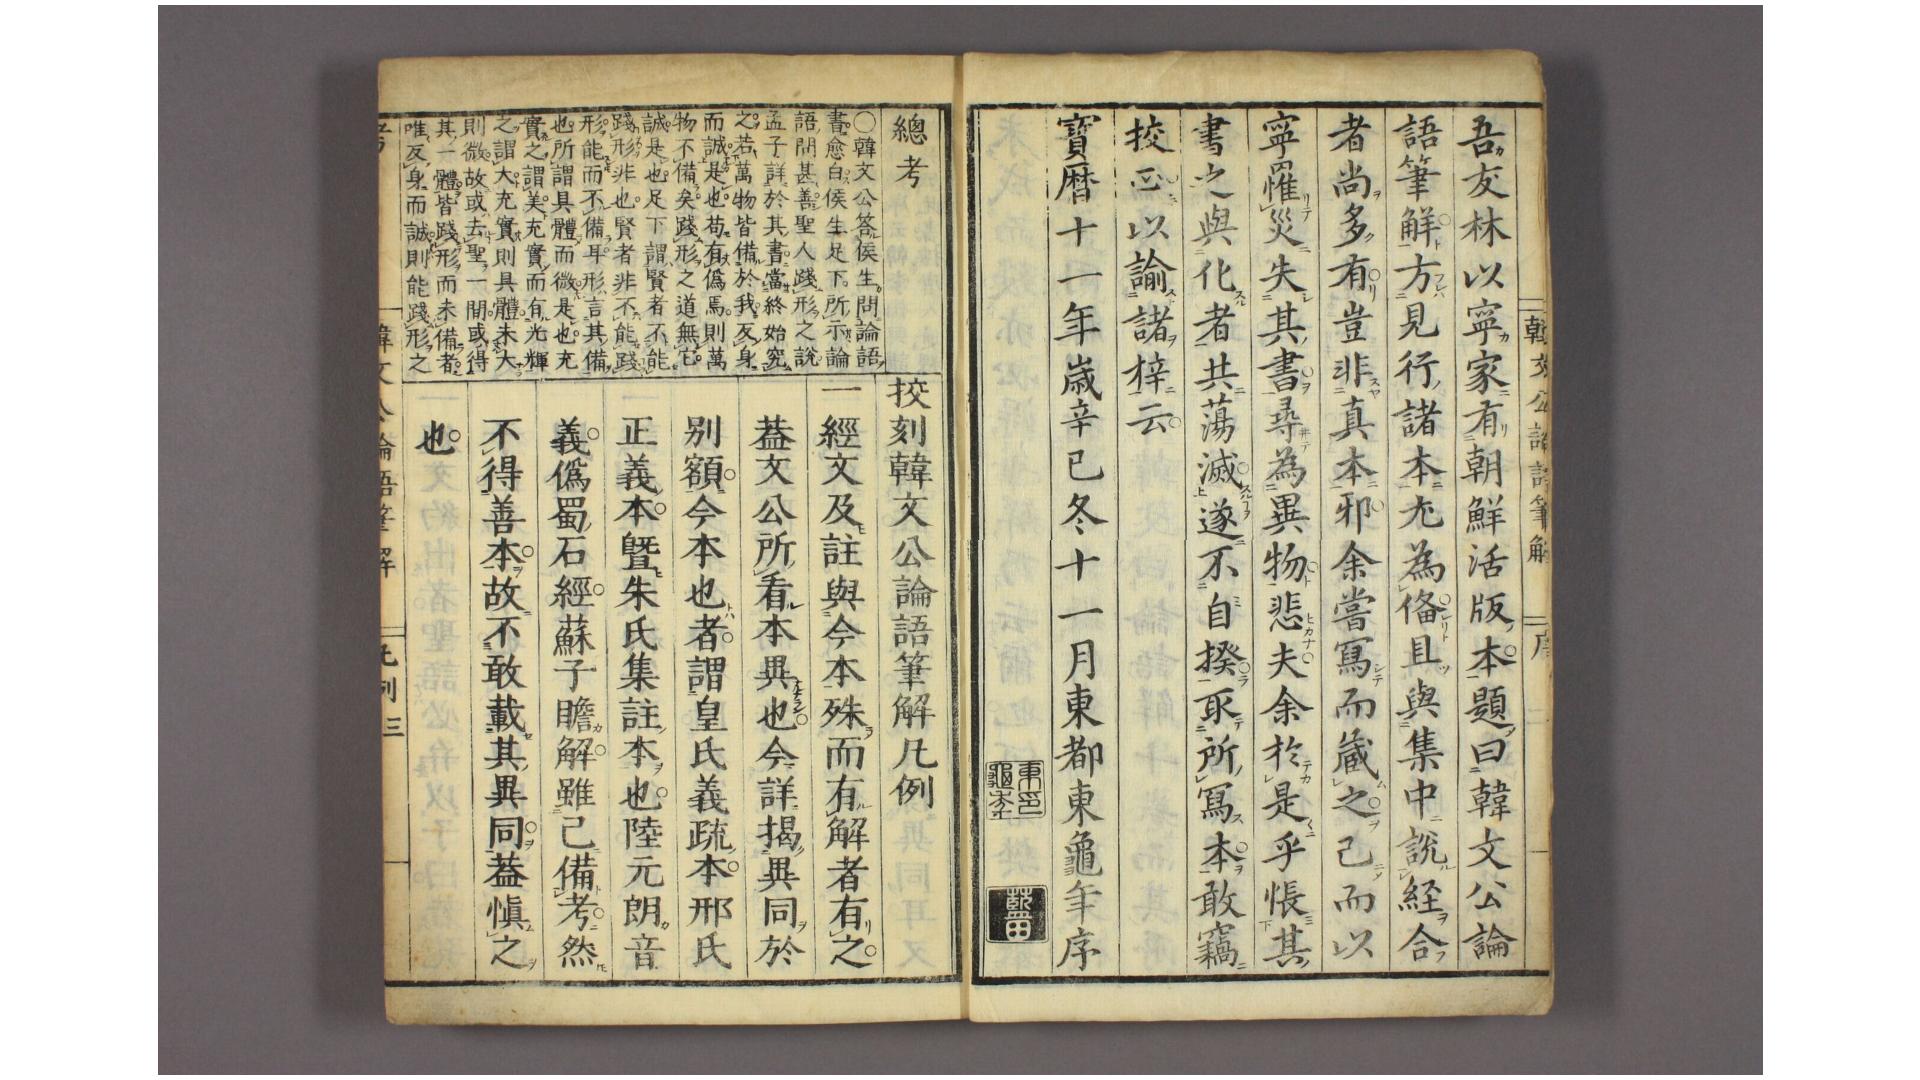 吾友林以寧家有朝鮮活版本題曰韓文公論
語筆解方見行諸本尤為俻且與集中說経合
者尚多有豈非真本邪余嘗寫而蔵之己而以
寧罹災失其書尋為異物悲夫余於是乎悵其
書之與化者共蕩滅遂不自揆取所寫本敢竊
挍正以諭諸梓云
寶暦十一年歳辛巳冬十一月東都東龜年序
總考
○韓文公答侯生問論語
書愈白侯生足下所示論
語問甚善聖人踐形之說
孟子詳於其書當終始究
之若萬物皆備於我反身
而誠是也苟有僞焉則萬
物不備矣踐形之道無它
誠是也足下謂賢者不能
踐形非也賢者非不能踐
形能而不備耳形言其備
也所謂具體而微是也充
實之謂美充實而有光輝
之謂大充實則具體未大
則微故或去聖一間或得
其一體皆踐形而未備者
唯反身而誠則能踐形之
挍刻韓文公論語筆解凡例
一經文及註與今本殊而有解者有之
葢文公所看本異也今詳揭異同於
別額今本也者謂皇氏義疏本邢氏
正義本曁朱氏集註本也陸元朗音
義僞蜀石經蘇子瞻解雖己備考然
不得善本故不敢載其異同葢愼之
也
韓文公論語筆解
凡例
三